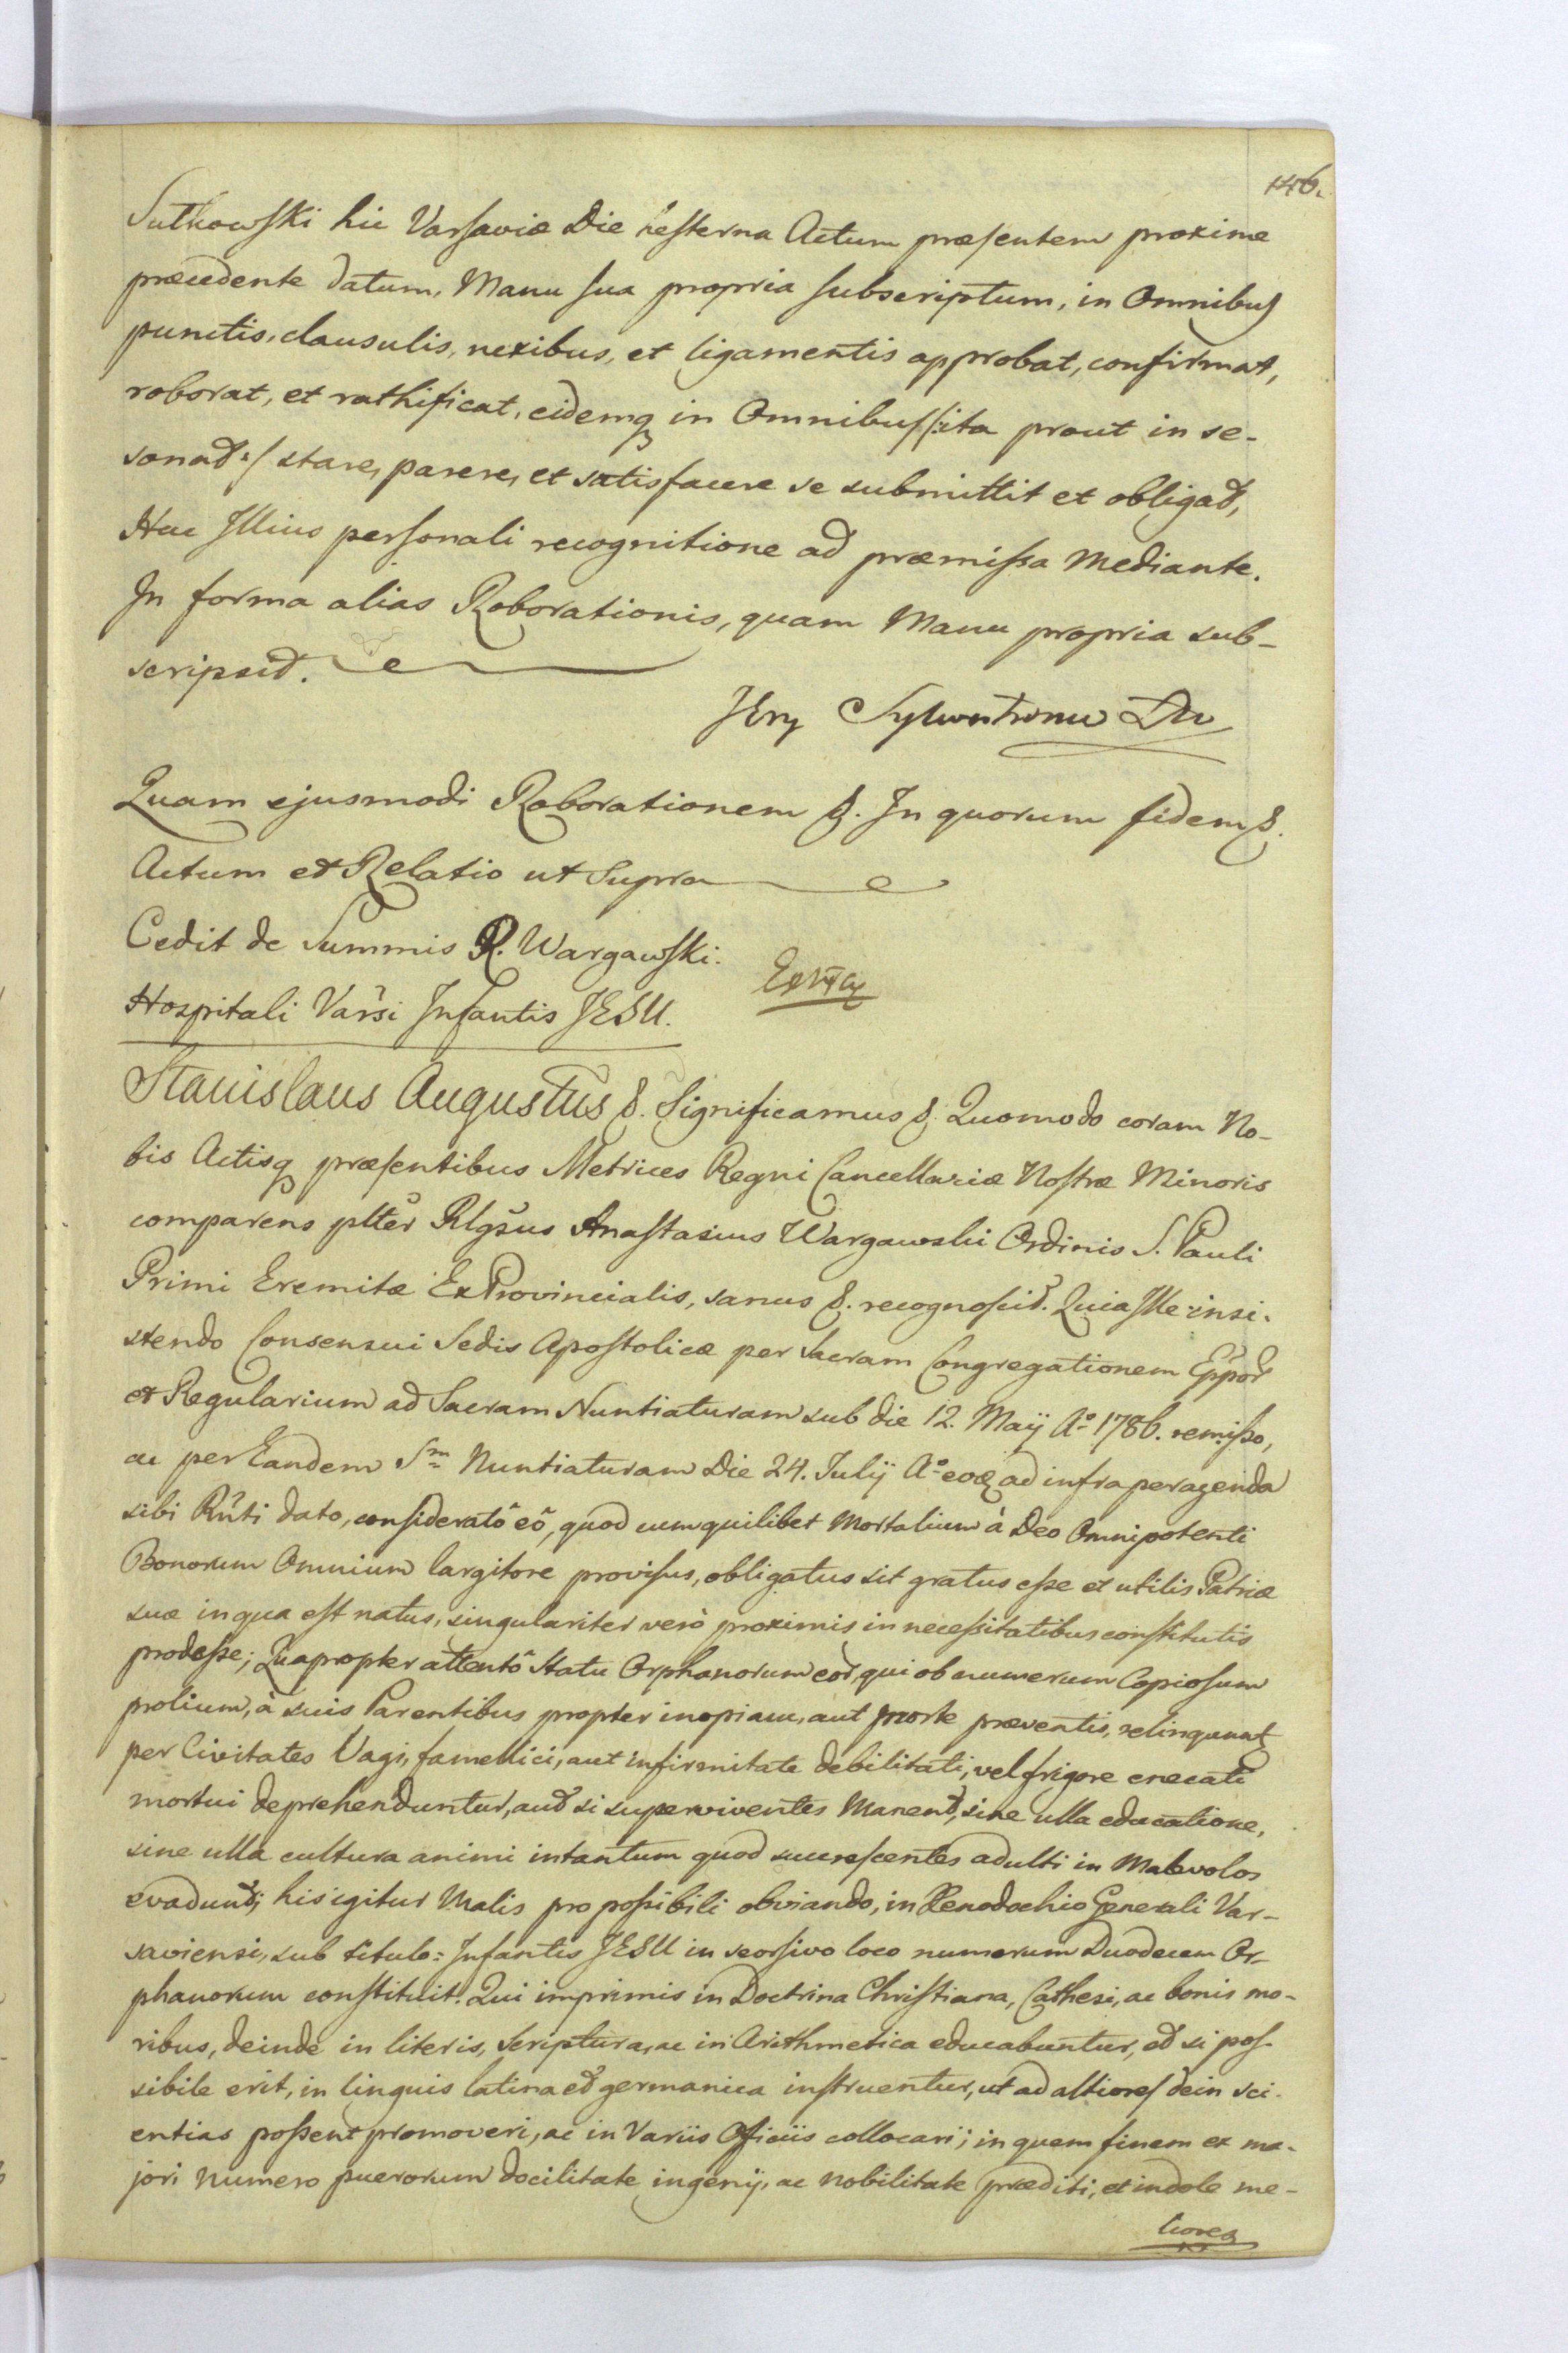 146.
Sulkowski hic Varsaviæ Die hesterna Actum præsentem proxime
præcedente datum, Manu sua propria subscriptum, in Omnibus
punctis, clausulis, nexibus, et ligamentis approbat, confirmat,
roborat, et rathificat, eidemq in Omnibus /:ita prout in se-
sonat:/ stare, parere, et satisfacere se submittit et obligat,
Hac Illius personali recognitione ad præmissa Mediante.
In forma alias Roborationis, quam Manu propria sub-
scripsit.
Quam ejusmodi Roborationem &. In quorum fidem &.
Actum et Relatio ut Supra
Cedit de Summis R. Wargawski.
Hospitali Varsi Infantis JESU.
Stanislaus Augustus &. Significamus &. Quomodo coram No-
bis Actisq præsentibus Metrices Regni Cancellariæ Nostræ Minoris
comparens plter Rlgsus Anastasius Wargawski Ordinis S. Pauli
Primi Eremitæ ExProvincialis, sanus &. recognoscit. Quia Ille insi-
stendo Consensui Sedis Apostolicæ per Sacram Congregationem Eppor
et Regularium ad Sacram Nuntiaturam sub die 12. Maij Ao 1786. remisso,
ac per Eandem Sm Nuntiaturam Die 24. Julij Ao eoq ad infra peragenda
sibi Rnti dato, consideratô eô, quod cum quilibet Mortalium à Deo Omnipotenti
Bonorum Omnium largitore provisus, obligatus sit gratus esse et utilis Patriæ
suæ in qua est natus, singulariter verò proximis in necessitatibus constitutis
prodesse; Quapropter attentô Statu Orphanorum eor, qui ob numerum Copiosum
prolium, à suis Parentibus propter inopiam, aut morte præventis, relinquunt
per Civitates Vagi, famellici, aut infirmitate debilitati, vel frigore enecati
mortui deprehenduntur, aut si superviventes Manent, sine ulla educatione,
sine ulla cultura animi intantum quod succrescentes adulti in Malevolos
evadunt; his igitur Malis pro possibili obviando, in Xenodochio Generali Var-
saviensi, sub titulo: Infantis JESU in seorsivo loco numerum Duodecem Or-
phanorum constituit. Qui imprimis in Doctrina Christiana, Cathesi, ac bonis mo-
ribus, deinde in literis, Scriptura, ac in Arithmetica educabuntur, et si pos-
sibile erit, in linguis latina et germanica instruentur, ut ad altiores dein sci-
entias possent promoveri, ac in Variis Officiis collocari; in quem finem ex ma-
jori numero puerorum docilitate ingenij, ac nobilitate præditi, et indole me-
liores